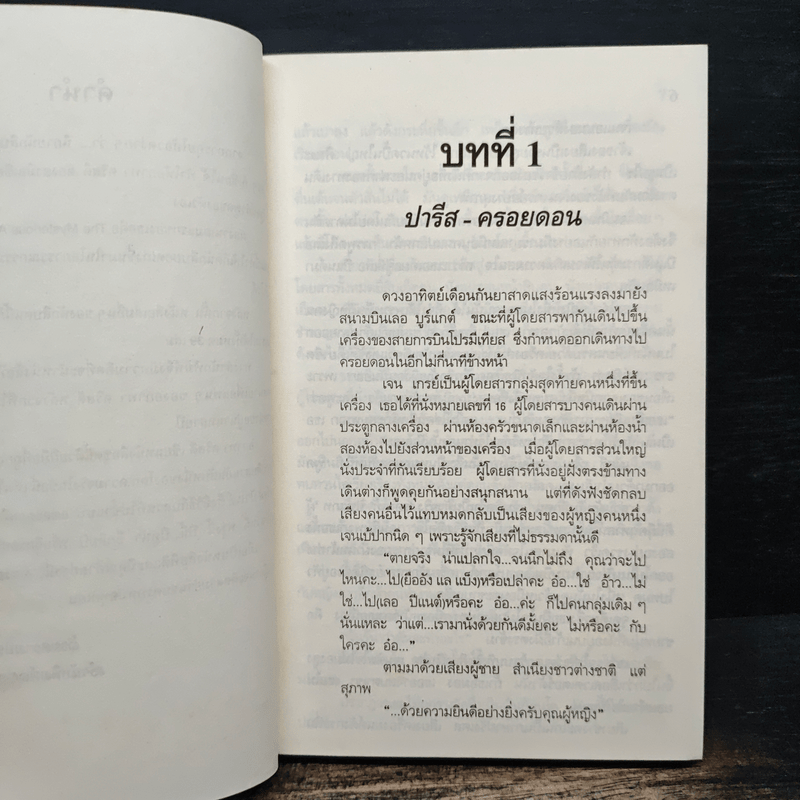 คำนำ
บทที่ 1
ปารีส - ครอยดอน
ดวงอาทิตย์เดือนกันยาสาดแสงร้อนแรงลงมายัง
สนามบินเลอ บูร์แกต์ ขณะที่ผู้โดยสารพากันเดินไปขึ้น
เครื่องของสายการบินโปรมีเทียส ซึ่งกำหนดออกเดินทางไป
ครอยดอนในอีกไม่กี่นาทีข้างหน้า
เจน เกรย์เป็นผู้โดยสารกลุ่มสุดท้ายคนหนึ่งที่ขึ้น
เครื่อง เธอได้ที่นั่งหมายเลขที่ 16 ผู้โดยสารบางคนเดินผ่าน
ประตูกลางเครื่อง ผ่านห้องครัวขนาดเล็กและผ่านห้องน้ำ
สองห้องไปยังส่วนหน้าของเครื่อง เมื่อผู้โดยสารส่วนใหญ่
นั่งประจำที่กันเรียบร้อย ผู้โดยสารที่นั่งอยู่ฝั่งตรงข้ามทาง
เดินต่างก็พูดคุยกันอย่างสนุกสนาน แต่ที่ดังฟังชัดกลบ
เสียงคนอื่นไว้แทบหมดกลับเป็นเสียงของผู้หญิงคนหนึ่ง
เจนเบ้ปากนิด ๆ เพราะรู้จักเสียงที่ไม่ธรรมดานั้นดี
“ตายจริง น่าแปลกใจ...จนนึกไม่ถึง คุณว่าจะไป
ไหนคะ...ไป(ยืออัง แล แบ็ง)หรือเปล่าคะ อ๋อ...ใช่ อ้าว...ไม่
ใช่...ไป(เลอ ปีแนต์)หรือคะ อ๋อ...ค่ะ ก็ไปคนกลุ่มเดิม ๆ
นั่นแหละ ว่าแต่...เรามานั่งด้วยกันดีมั้ยคะ ไม่หรือคะ กับ
ใครคะ อ๋อ...”
ตามมาด้วยเสียงผู้ชาย สำเนียงชาวต่างชาติ แต่
สุภาพ
“...ด้วยความยินดีอย่างยิ่งครับคุณผู้หญิง”